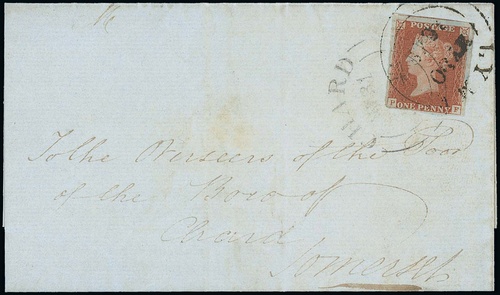 POSTAGE
ONE PENNY
HARD
LY
To the Overseers of the Poor
of the Boro of
Chard
Somerset